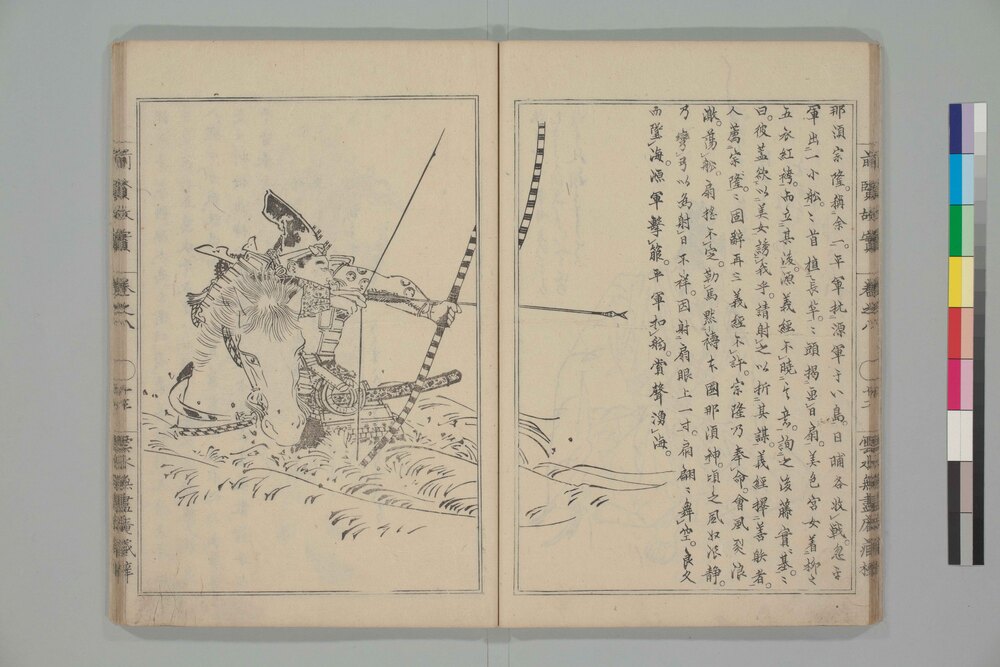 那須宗隆。稱余一。平軍拒源軍于八島。日晡各收戰。忽
軍出一小舩。舩首植長竿。竿頭揭畫日扇。美色宮女着柳之
五衣紅袴。而立其後。源義經不曉其意。詢之後藤實基。實基
曰。彼蓋欲以美女誘我乎。請射之以折其謀。義經擇善射者。
人薦宗隆。宗隆固辭再三。義經不許。宗隆乃奉命。會風烈浪
激。蕩舩。扇搖不定。勒馬默禱本國那須神。頃之風收浪静。
乃彎弓以為射日不祥。因射扇眼上一寸。扇翩翩舞空。良久
而墜海。源軍擊箙。平軍扣舷。賞聲湧海。
前賢故實
卷之八
雲水無盡庵藏梓